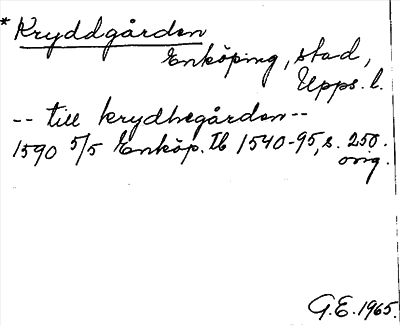 *Kryddgården
Enköping, stad,
Upps. l.
-- till krydhegården --
1590 5/5 Enköp. Tb 1540-95, s. 250.
orig.
G.E. 1965.